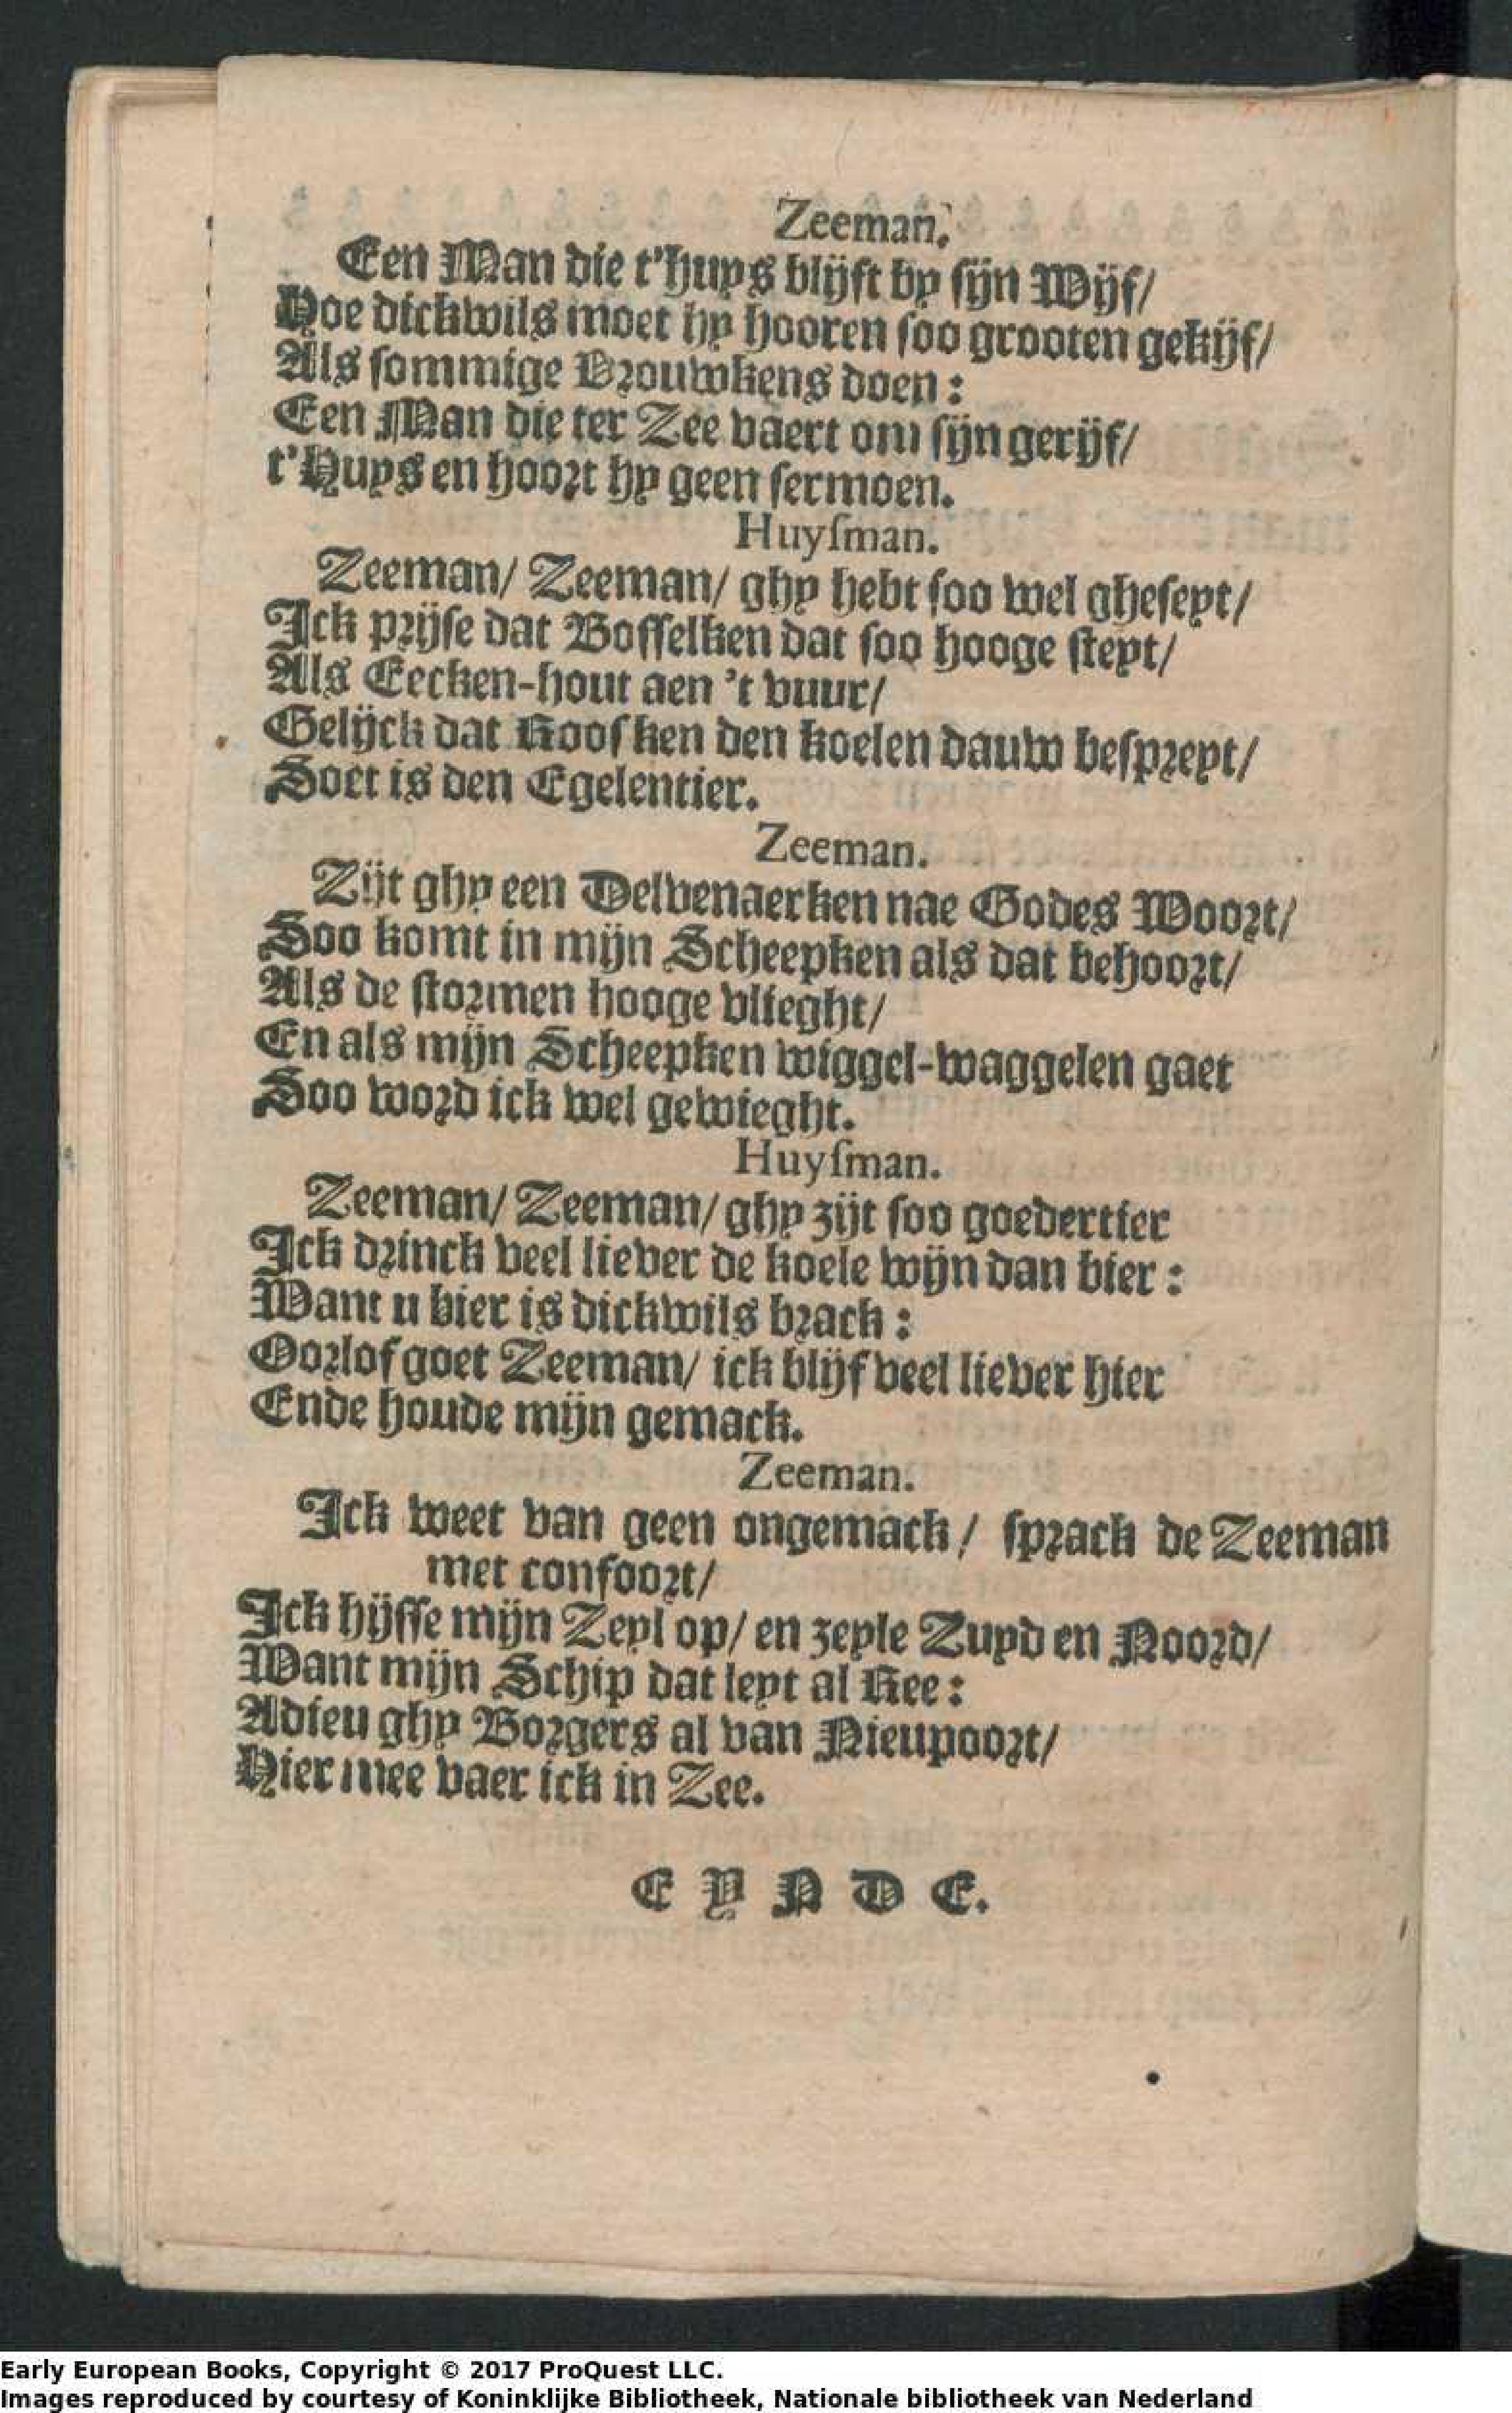 Zeeman.
Een Man die t'huys blijft by sijn Wijf/
Hoe dickwils moet hy hooren soo grooten gekijf/
Als sommige Vrouwkens doen:
Een Man die ter Zee vaert om sijn gerijf/
t'Huys en hoort hy geen sermoen.
Huysman.
Zeeman/ Zeeman/ ghy hebt soo wel gheseyt/
Ick prijse dat Bosselken dat soo hooge steyt/
Als Eecken-hout aen 't vuur/
Gelijck dat Roosken den koelen dauw bespreyt/
Soet is den Egelentier.
Zeeman.
Zijt ghy een Delvenaerken nae Godes Woort/
Soo komt in mijn Scheepken als dat behoort/
Als de stormen hooge vlieght/
En als mijn Scheepken wiggel-waggelen gaet
Soo word ick wel gewieght.
Huysman.
Zeeman/ Zeeman/ ghy zijt soo goedertier
Ick drinck veel liever de koele wijn dan bier:
Want u bier is dickwils brack:
Oorlof goet Zeeman/ ick blijf veel liever hier
Ende houde mijn gemack.
Zeeman.
Ick weet van geen ongemack/ sprack de Zeeman
met confoort/
Ick hijsse mijn Zeyl op/ en zeyle Zuyd en Noord/
Want mijn Schip dat leyt al Ree:
Adieu ghy Borgers al van Nieupoort/
Hier mee vaer ick in Zee.
EYNDE.
Early European Books, Copyright © 2017 ProQuest LLC.
Images reproduced by courtesy of Koninklijke Bibliotheek, Nationale bibliotheek van Nederland